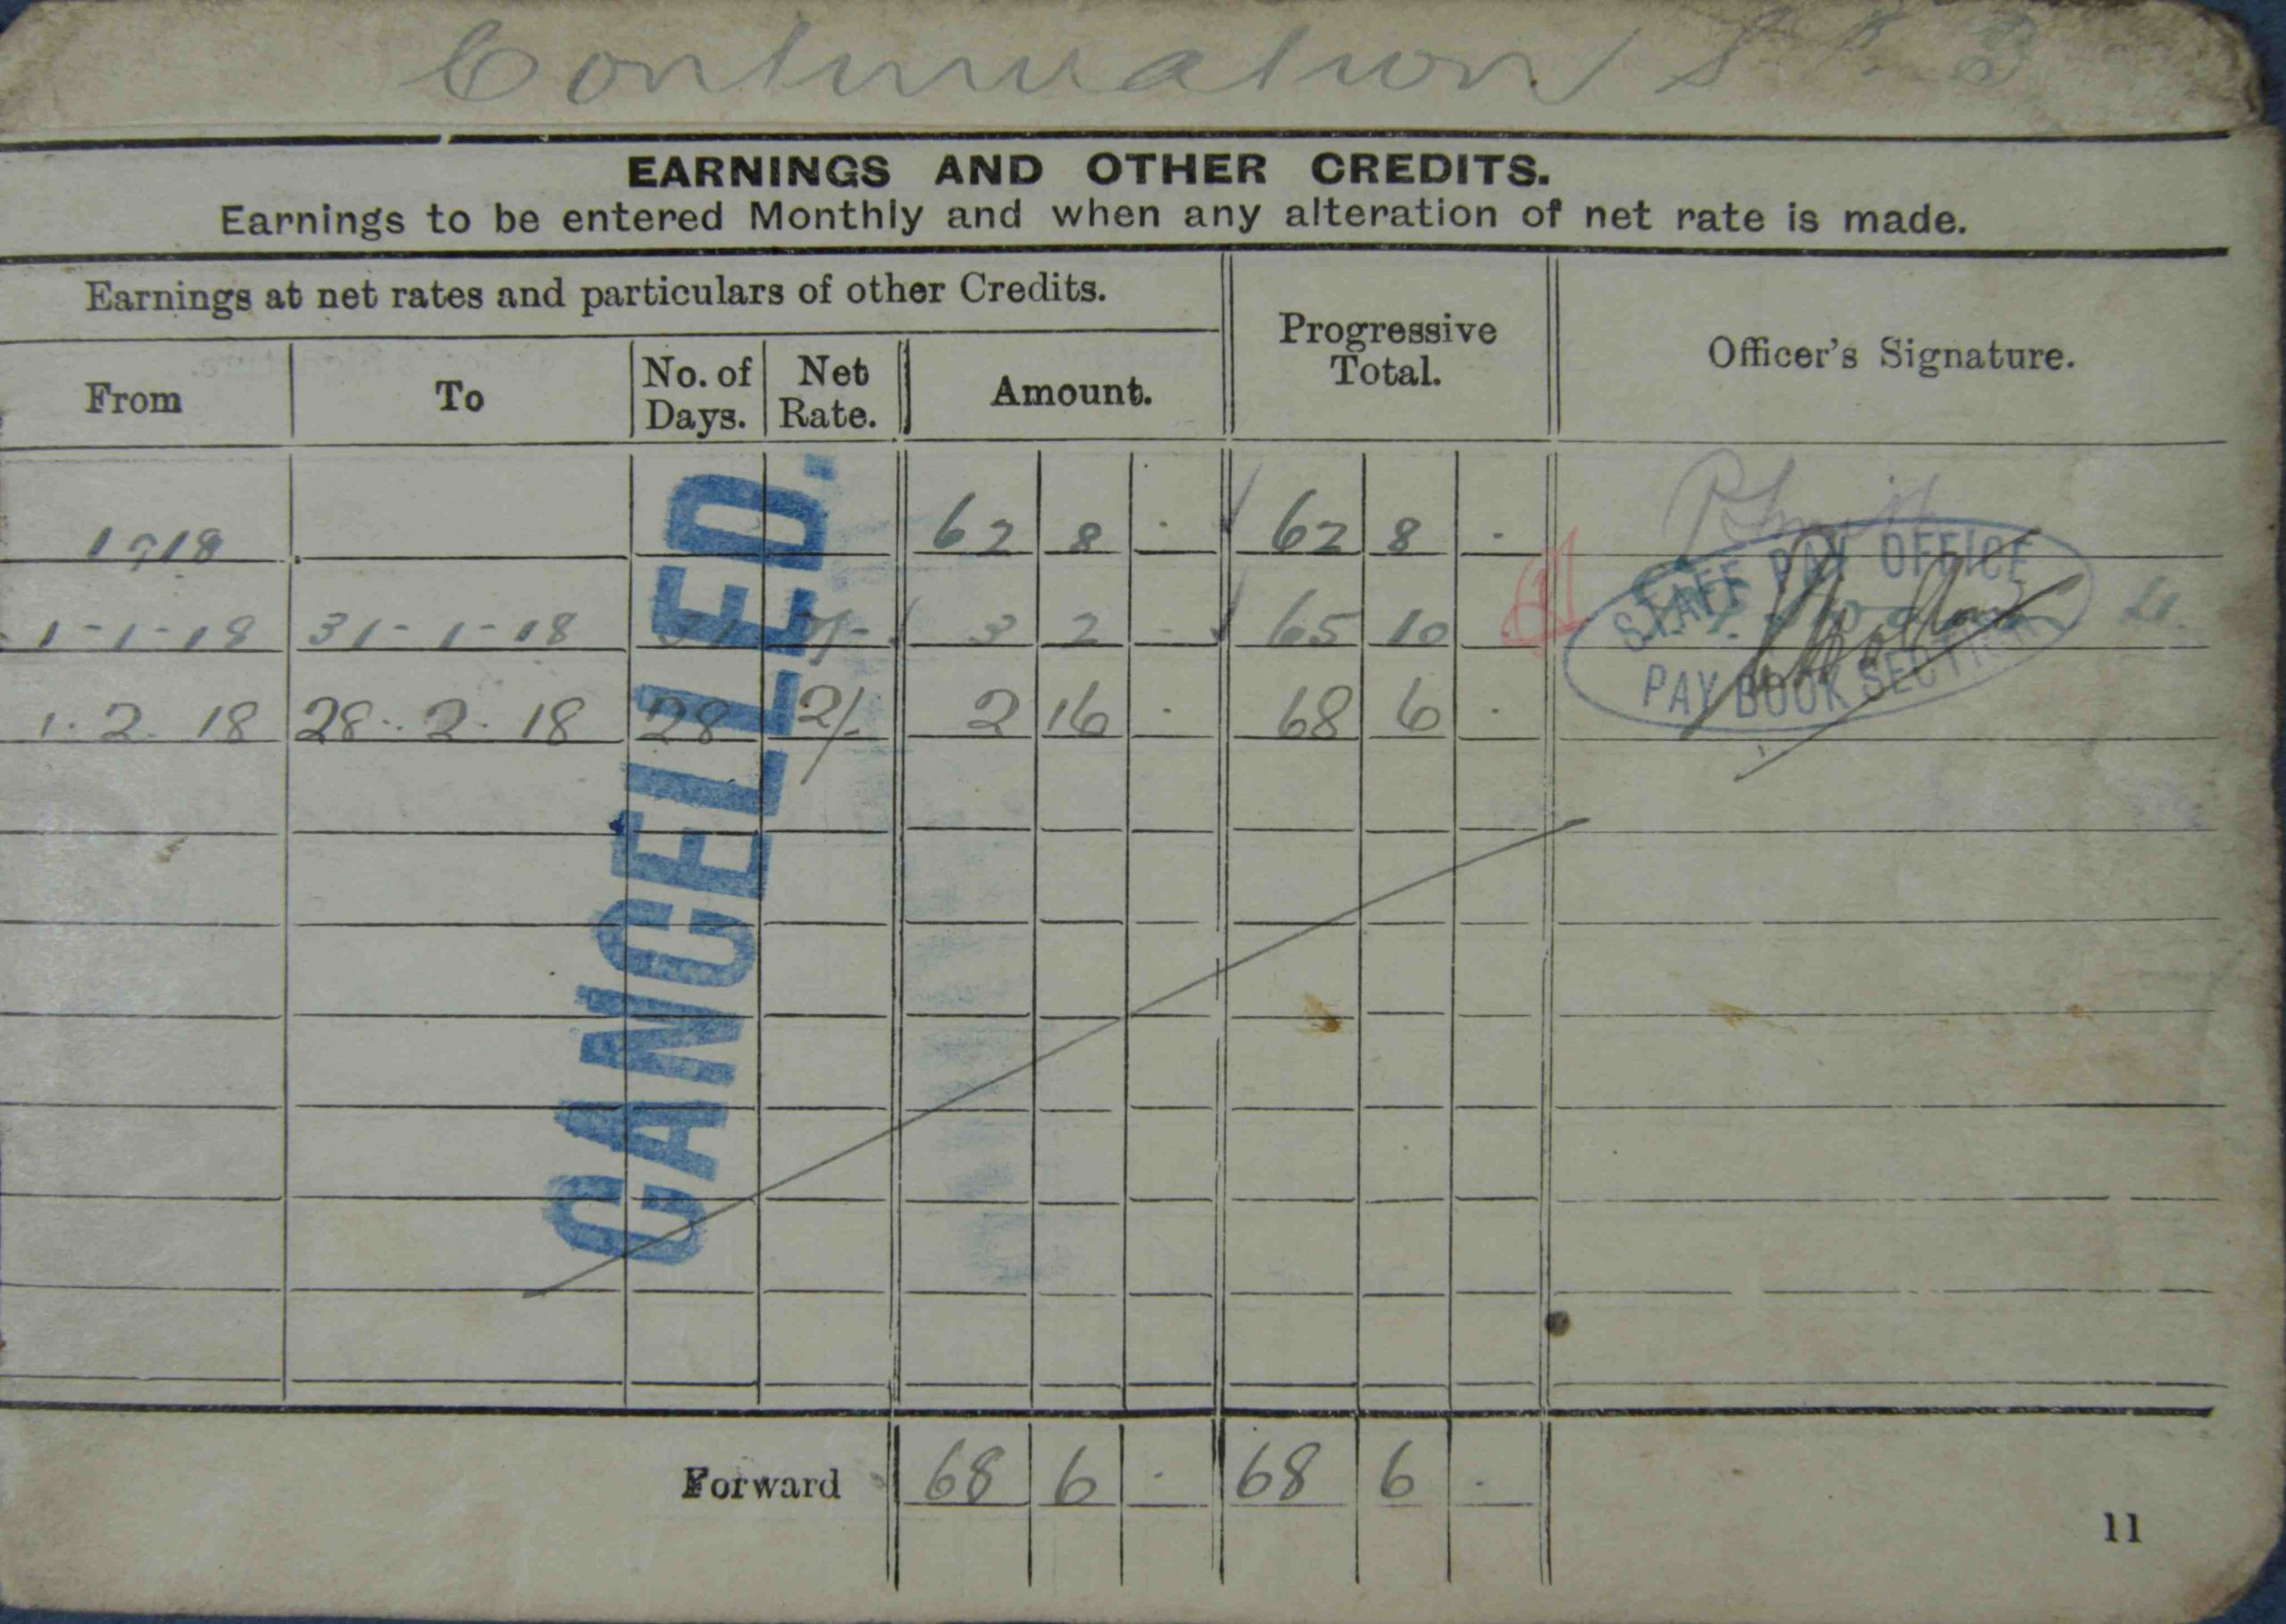 Continuation
EARNINGS AND OTHER CREDITS.
Earnings to be entered Monthly and when any alteration of net rate is made.
Earnings at net rates and particulars of other Credits.
From To No. of Days. Net Rate. Amount. Progressive Total. Officer's Signature.
1918 62 8 . 62 8 .
1-1-18 31-1-18 31 2/- 3 2 - 65 10
1.2.18 28.2.18 28 2/- 2 16 . 68 6 .
CANCELLED.
STAFF PAY OFFICE
PAY BOOK SECTION
Forward 68 6 . 68 6 .
11